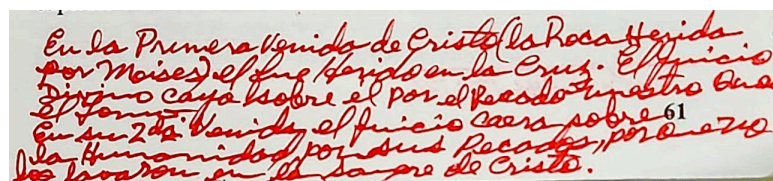 En la Primera Venida de Cristo (la Roca Herida
por Moises) el fue Herido en la Cruz. El Juicio
Divino cayo sobre el por el Pecado nuestro que
el Tomó.
61
En su 2da Venida, el Juicio caera sobre
la Humanidad por sus Pecados, porque no
los lavaron en la Sangre de Cristo.